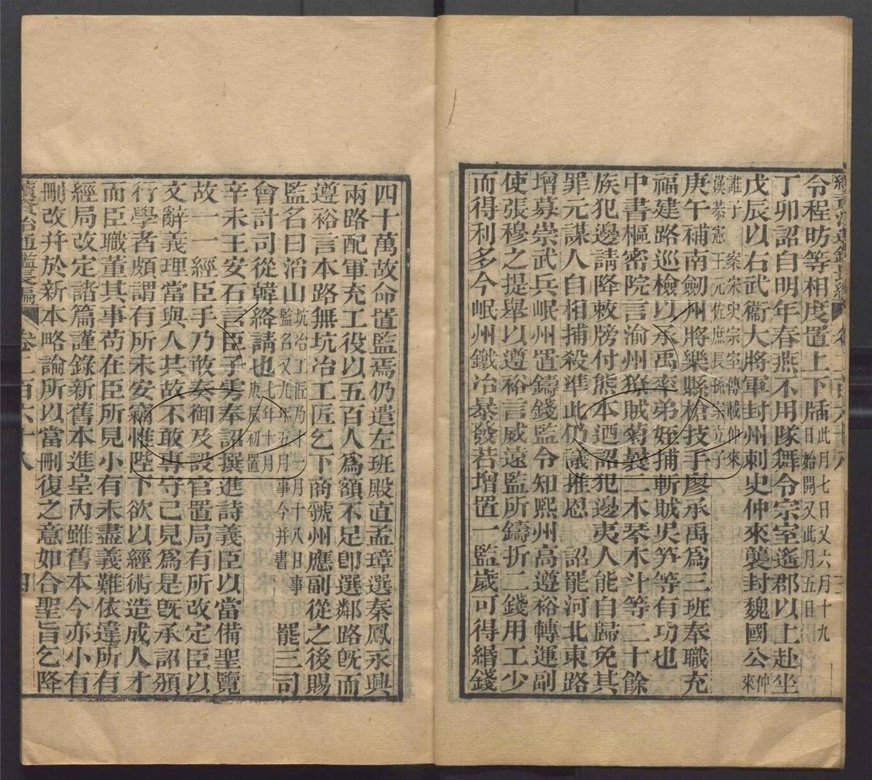 續資治通鑑長編 卷二百六十八
令程昉等相度置上下牐此月七日又六月十九日始開又此月五日
丁卯詔自明年春燕不用隊舞令宗室遙郡以上赴坐
戊辰以右武衞大將軍封州刺史仲來襲封魏國公仲來
誰子 案宋史宗室傳載仲來
漢恭憲王元佐庶長孫宗立子
庚午補南劒州將樂縣槍技手廖承禹爲三班奉職充
福建路巡檢以承禹率弟姪捕斬賊吳笋等有功也
中書樞密院言渝州獠賊菊㠖二木琴木斗等三十餘
族犯邊請降敕牓付熊本迺詔犯邊夷人能自歸免其
罪元謀人自相捕殺準此仍議推恩 詔罷河北東路
增募崇武兵岷州置鑄錢監令知熙州高遵裕轉運副
使張穆之提舉以遵裕言威遠監所鑄折二錢用工少
而得利多今岷州鐵冶暴發若增置一監歲可得緡錢
四十萬故命置監焉仍遣左班殿直孟璋選秦鳳永興
兩路配軍充工役以五百人爲額不足卽選鄰路旣而
遵裕言本路無坑冶工匠乞下商虢州應副從之後賜
監名曰滔山坑冶工匠乃十一月十八日事監名又九年五月事今并書 罷三司
會計司從韓絳請也七年十月庚辰初置
辛未王安石言臣子雱奉詔撰進詩義臣以當備聖覽
故一一經臣手乃敢奏御及設官置局有所改定臣以
文辭義理當與人共故不敢專守己見爲是旣承詔頒
行學者頗謂有所未安竊惟陛下欲以經術造成人才
而臣職董其事苟在臣所見小有未盡義難依違所有
經局改定諸篇謹錄新舊本進呈內雖舊本今亦小有
刪改并於新本略論所以當刪復之意如合聖旨乞降
續資治通鑑長編 卷二百六十八 四